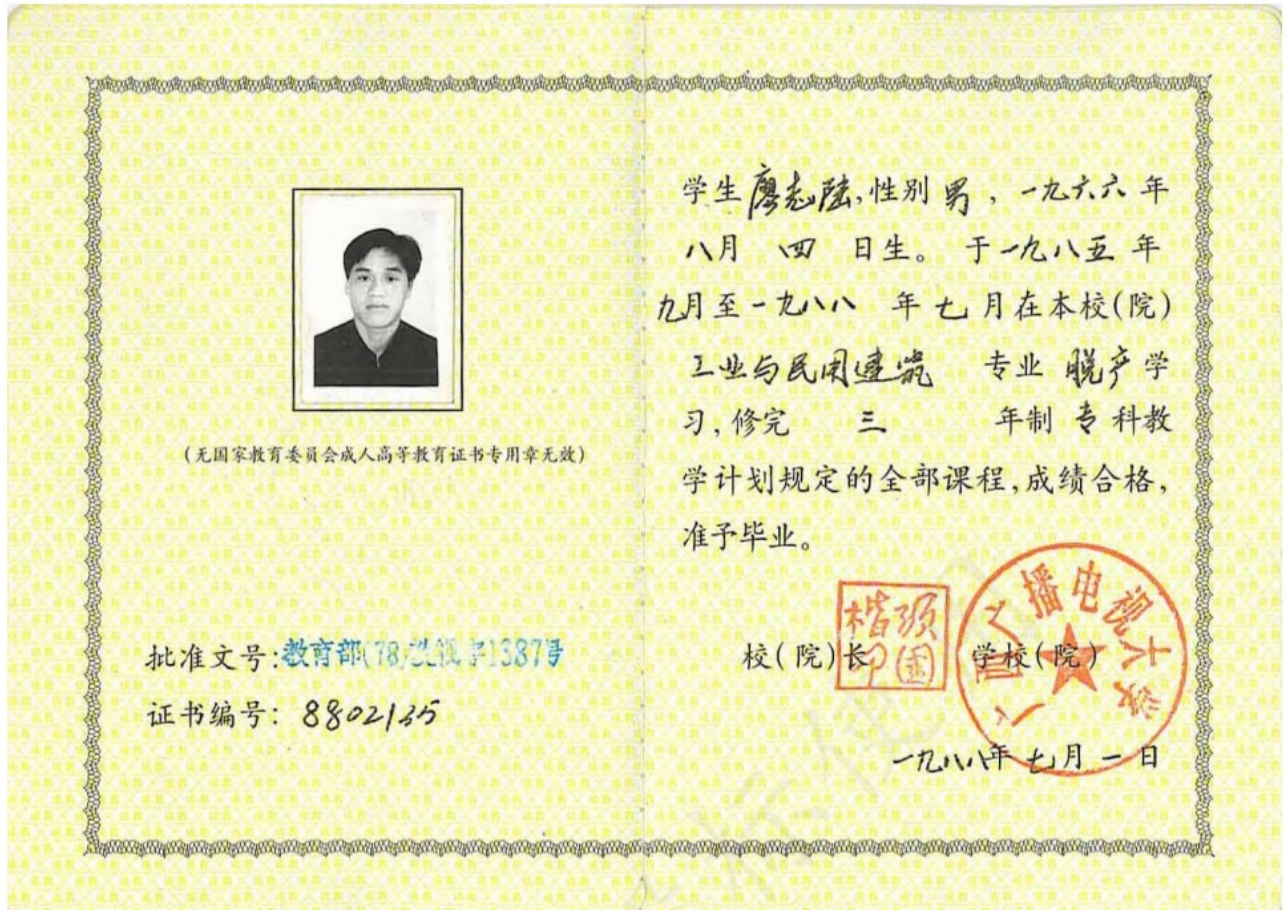 (无国家教育委员会成人高等教育证书专用章无效)
批准文号:教育部(78)1387号
证书编号: 8802135
学生廖志陆,性别 男 ,一九六六年
八月 四 日生。于一九八五年
九月至一九八八 年七月在本校(院)
工业与民用建筑 专业 脱产学
习,修完 三 年制 专 科教
学计划规定的全部课程,成绩合格,
准予毕业。
校(院)长
学校(院)
广西广播电视大学
一九八八年七月一日